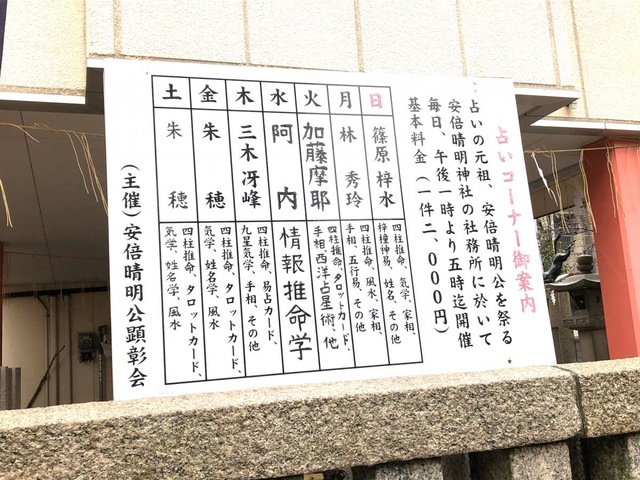 占いコーナー御案内
占いの元祖、安倍晴明公を祭る
安倍晴明神社の社務所に於いて
毎日、午後一時より五時迄開催
基本料金（一件二、000円）
日
篠原梓水
四柱推命、気学、家相、
梓撞神易、姓名、その他
月
林秀玲
四柱推命、風水、家相、
手相、五行易、その他
火
加藤摩耶
四柱推命、タロットカード、
手相、西洋占星術、他
水
阿内
情報推命学
木
三木冴峰
四柱推命、易占カード、
九星気学、手相、その他
金
朱穂
四柱推命、タロットカード、
気学、姓名学、風水
土
朱穂
四柱推命、タロットカード、
気学、姓名学、風水
（主催）安倍晴明公顕彰会